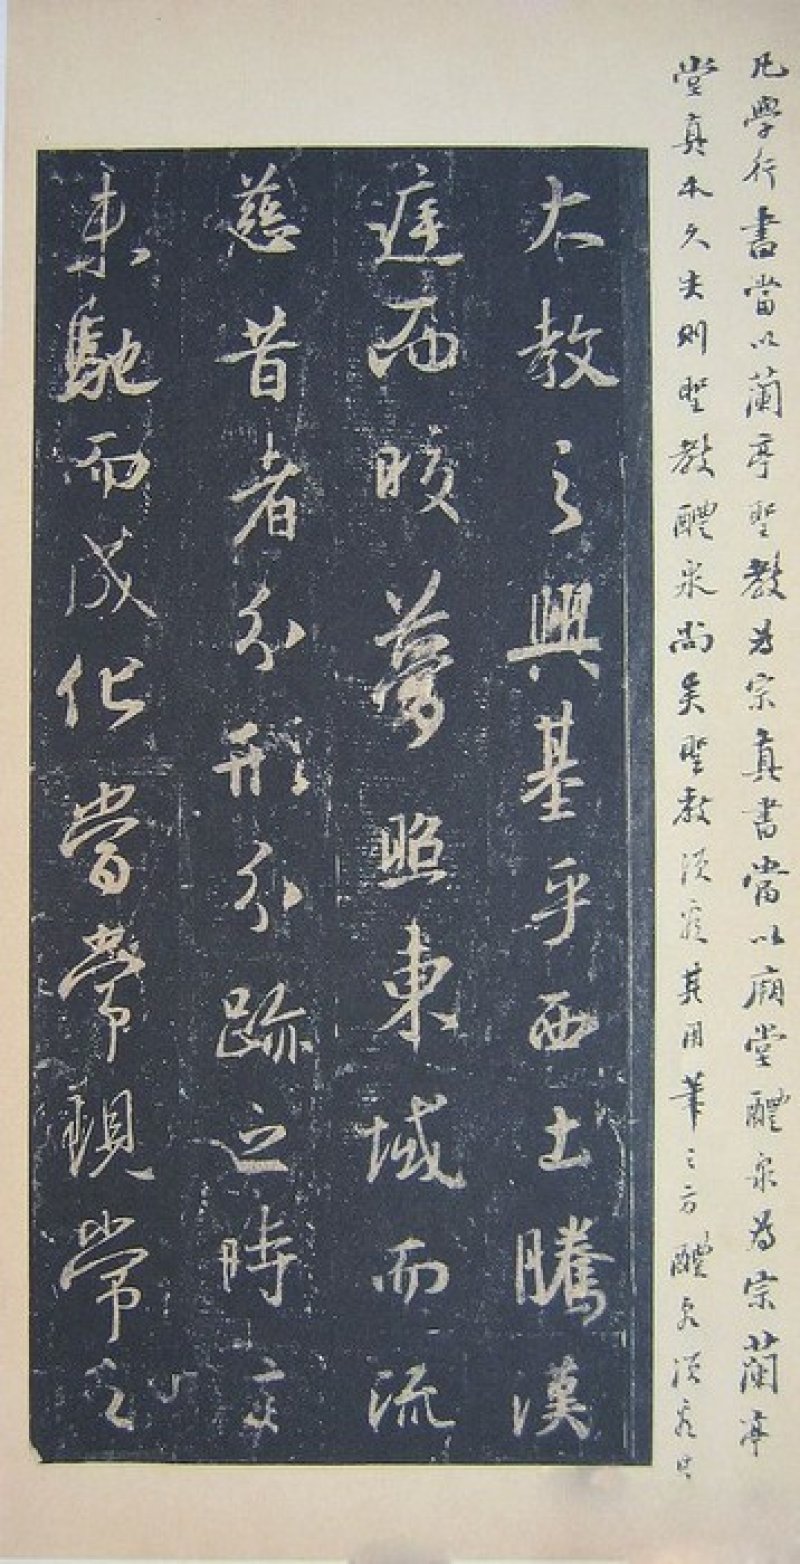 凡學行書當以蘭亭聖教為宗真書當以廟堂醴泉為宗蘭亭
堂真本久失則聖教醴泉尚矣聖教須究其用筆之方醴泉須究
大教之興基乎西土騰漢
庭而皎夢照東域而流
慈昔者分形分跡之時言
未馳而成化當常現常之